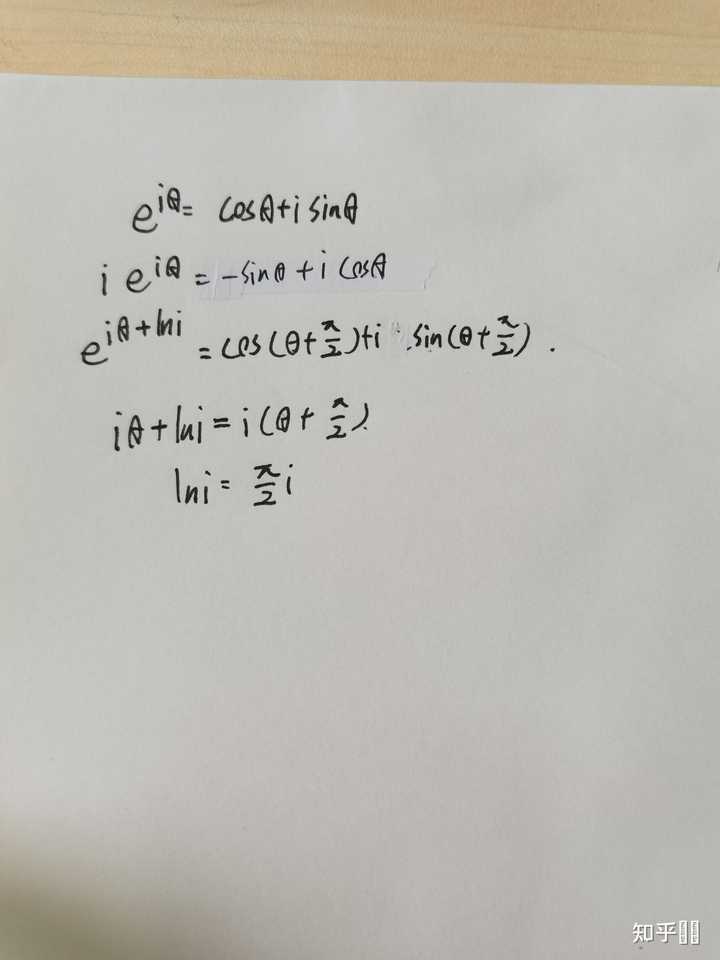 e^{iθ} = cosθ+i sinθ
i e^{iθ} = -sinθ + i cosθ
e^{iθ+lni} = cos(θ+π/2)+i sin(θ+π/2).
iθ+lni = i(θ+π/2).
lni = π/2 i
知乎